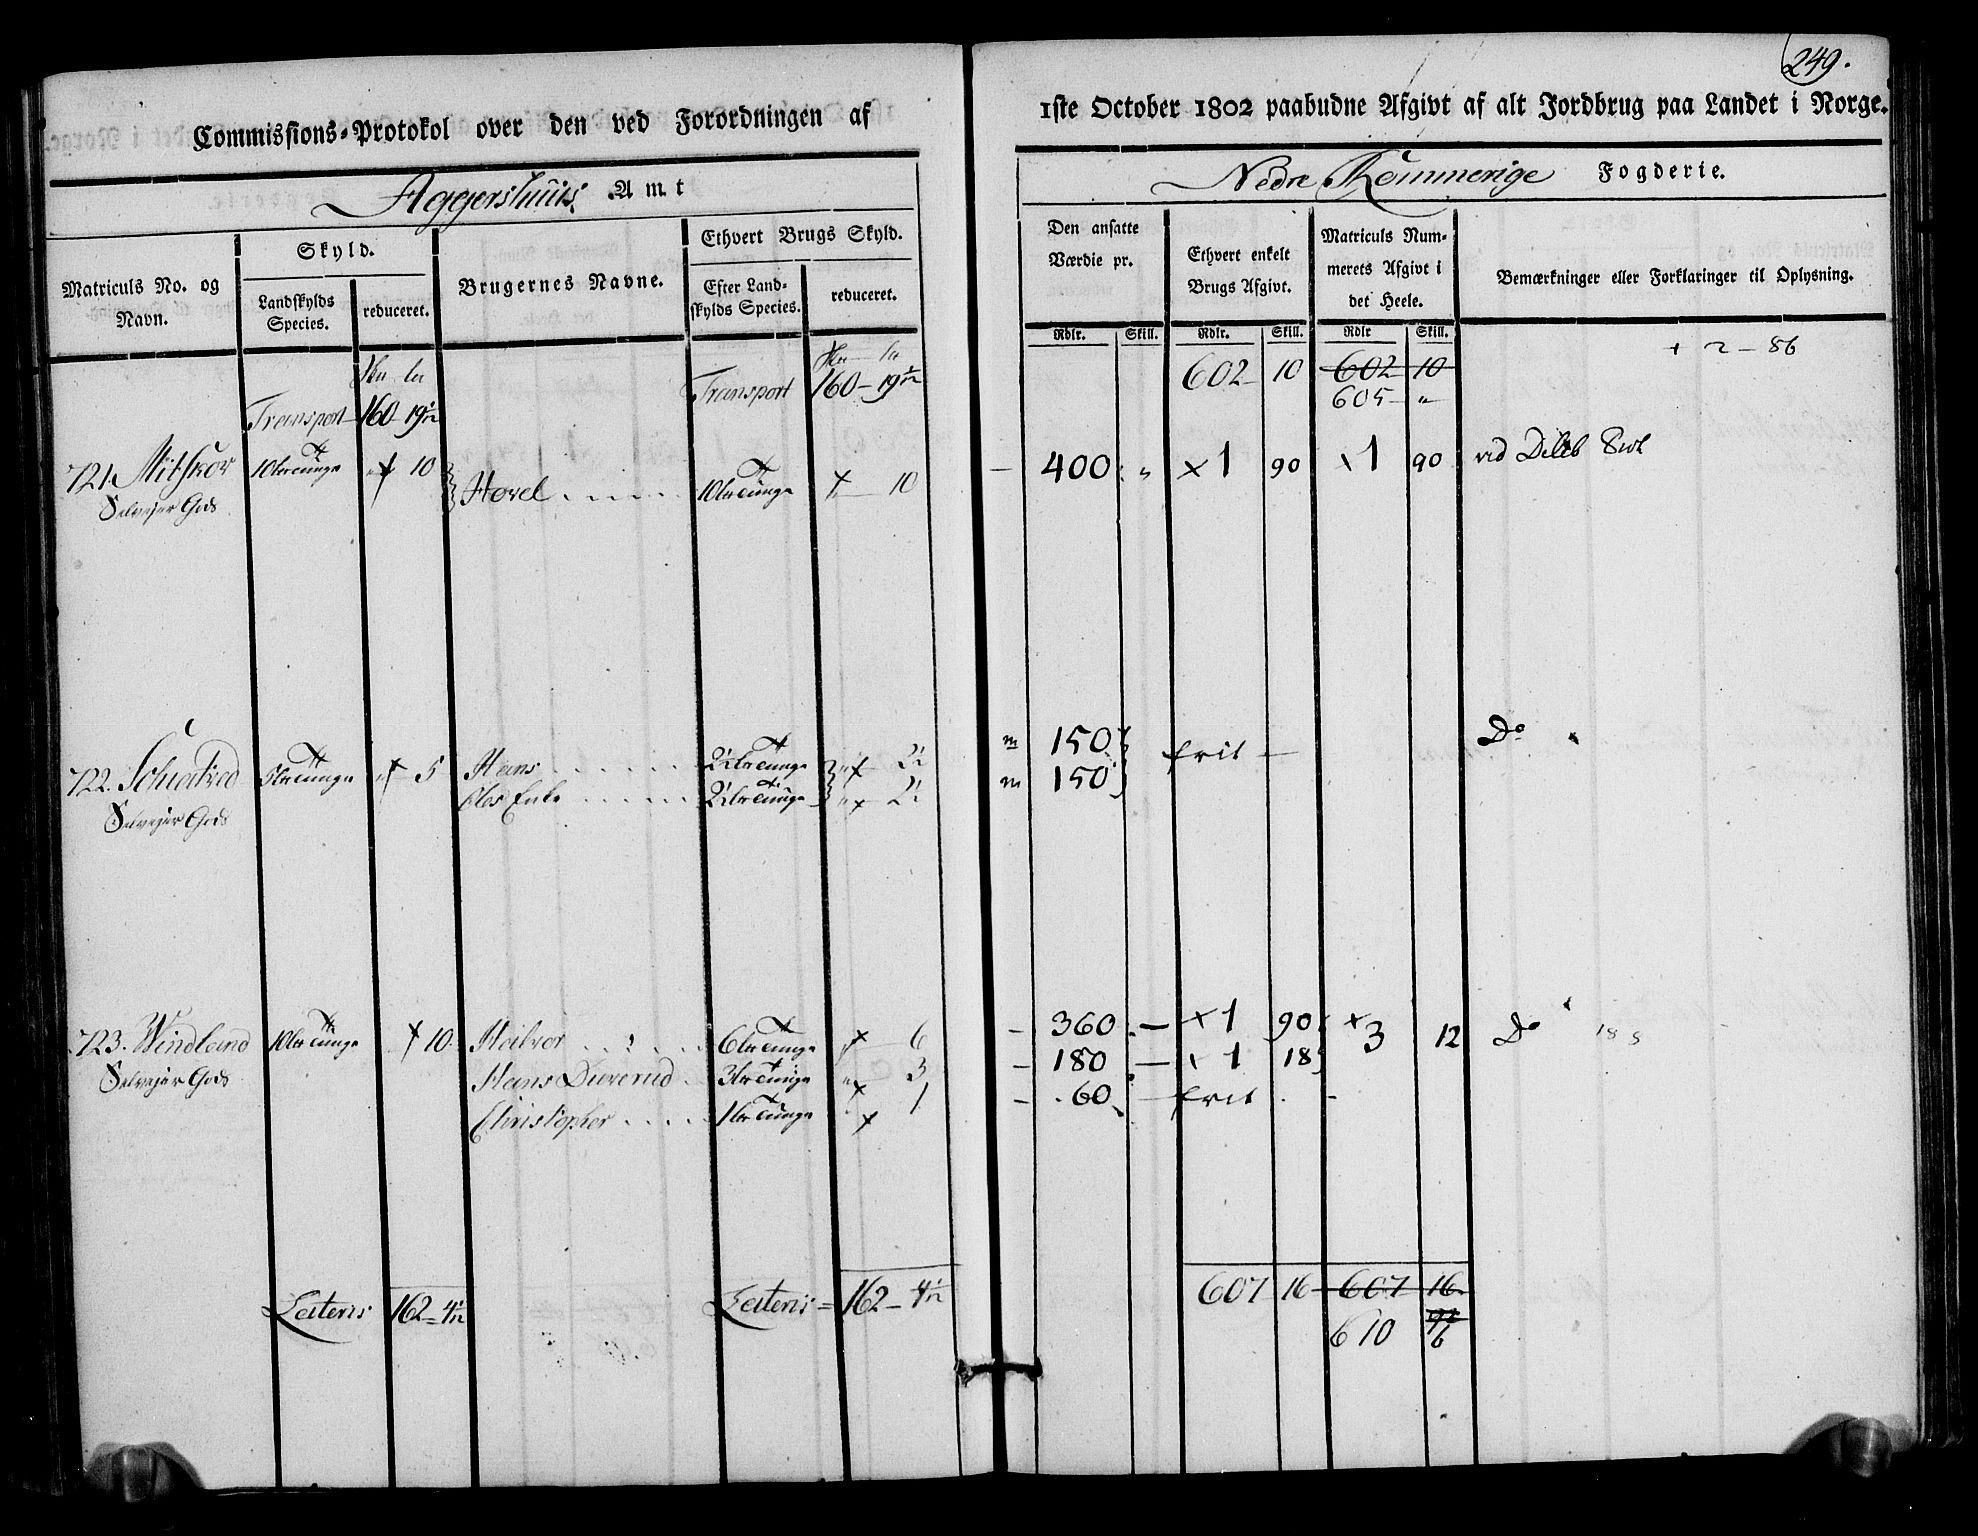 249.
Commissions-Protokol over den ved Forordningen af 1ste October 1802 paabudne Afgivt af alt Jordbrug paa Landet i Norge.
Aggershuus Amt
Nedre Rommerige Fogderie.
Matriculs No. og Navn.
Skyld.
Landskylds Species.
reduceret.
Brugernes Navne.
Ethvert Brugs Skyld.
Efter Landskylds Species.
reduceret.
Den ansatte Værdie pr.
Ethvert enkelt Brugs Afgivt.
Matriculs Nummerets Afgivt i det Heele.
Bemærkninger eller Forklaringer til Oplysning.
Rdlr. Skill. Rdlr. Skill. Rdlr Skill.
+ 2 - 86
Transport 160 - 19½ Transport 160 - 19½ 602 10 602 10
605 "
721. Mitskov 10 10 Hovel 10 400 " 1 90 1 90
Selvejer Gods
722. 5 5 Hans 2½ 2½ 150 frit Do
Selvejer Gods 2½ 2½ 150
723. Windland 10 10 Halvor 6 6 360 1 90 3 12 Do
Selvejer Gods Hans 3 3 180 1 18
Christopher 1 1 60 frit
Lateris 162 - 4½ Lateris 162 - 4½ 607 16 607 16
610